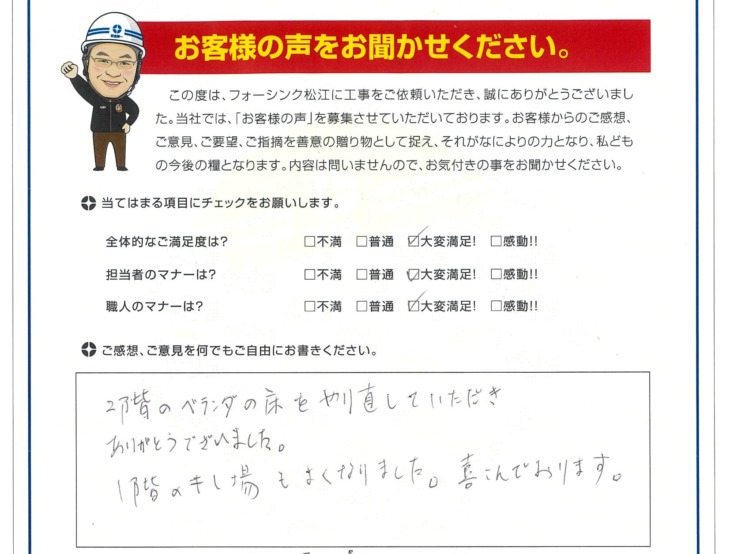 お客様の声をお聞かせください。
この度は、フォーシンク松江に工事をご依頼いただき、誠にありがとうございまし
た。当社では、「お客様の声」を募集させていただいております。お客様からのご感想、
ご意見、ご要望、ご指摘を善意の贈り物として捉え、それがなによりの力となり、私ども
の今後の糧となります。内容は問いませんので、お気付きの事をお聞かせください。
当てはまる項目にチェックをお願いします。
全体的なご満足度は? □不満 □普通 ☑大変満足! □感動!!
担当者のマナーは? □不満 □普通 ☑大変満足! □感動!!
職人のマナーは? □不満 □普通 ☑大変満足! □感動!!
ご感想、ご意見を何でもご自由にお書きください。
2階のベランダの床をやり直していただき
ありがとうございました。
1階の干し場もよくなりました。喜こんでおります。